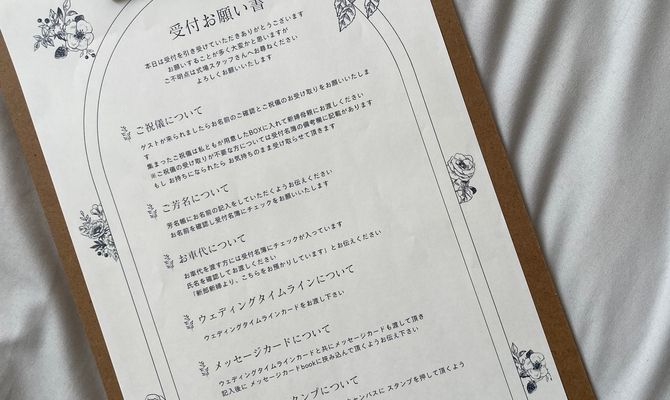 受付お願い書
本日は受付を引き受けていただきありがとうございます
お願いすることが多く大変かと思いますが
ご不明点は式場スタッフさんへお尋ねください
よろしくお願いいたします
ご祝儀について
ゲストが来られましたらお名前のご確認とご祝儀のお受け取りをお願いいたしま
す
集まったご祝儀は私ども が用意したBOXに入れて新婦母親にお渡しください
※ご祝儀の受け取りが不要な方については受付名簿の備考欄に記載があります
もし お持ちになられたら お気持ちのまま受け取らせて頂きます
ご芳名について
芳名帳にお名前の記入をしていただくようお伝えください
お名前を確認し受付名簿にチェックをお願いします
お車代について
お車代を渡す方には受付名簿にチェックが入っています
氏名を確認してお渡しください
「新郎新婦より、こちらをお預かりしています」とお伝えください
ウェディングタイムラインについて
ウェディングタイムラインカードをお渡し下さい
メッセージカードについて
ウェディングタイムラインカードと共にメッセージカードも渡して頂き
記入後に メッセージカードbookに挟み込んで頂くようお伝え下さい
タンプについて
ャンバスに スタンプを押して頂くよう